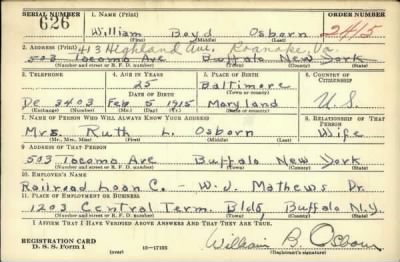 SERIAL NUMBER
1. NAME (Print)
ORDER NUMBER
626
William Boyd Osborn
2415
(First) (Middle) (Last)
2. ADDRESS (Print)
413 Highland Ave. Roanoke, Va.
503 Tacoma Ave Buffalo New York
(Number and street or R. F. D. number) (Town) (County) (State)
3. TELEPHONE
4. AGE IN YEARS
5. PLACE OF BIRTH
6. COUNTRY OF CITIZENSHIP
25
Baltimore
(Town or county)
De 3403
Feb 5 1915
Maryland
U.S.
(Exchange) (Number)
(Mo.) (Day) (Yr.)
(State or country)
7. NAME OF PERSON WHO WILL ALWAYS KNOW YOUR ADDRESS
8. RELATIONSHIP OF THAT PERSON
Mrs. Ruth L. Osborn
Wife
(Mr., Mrs., Miss) (First) (Middle) (Last)
9. ADDRESS OF THAT PERSON
503 Tacoma Ave Buffalo New York
(Number and street or R. F. D. number) (Town) (County) (State)
10. EMPLOYER'S NAME
Railroad Loan C. - W. J. Mathews Dr.
11. PLACE OF EMPLOYMENT OR BUSINESS
1203 Central Term. Bldg, Buffalo N.Y.
(Number and street or R. F. D. number) (Town) (County) (State)
I AFFIRM THAT I HAVE VERIFIED ABOVE ANSWERS AND THAT THEY ARE TRUE.
REGISTRATION CARD
D. S. S. Form 1
(over)
16-17105
William B. Osborn
(Registrant's signature)